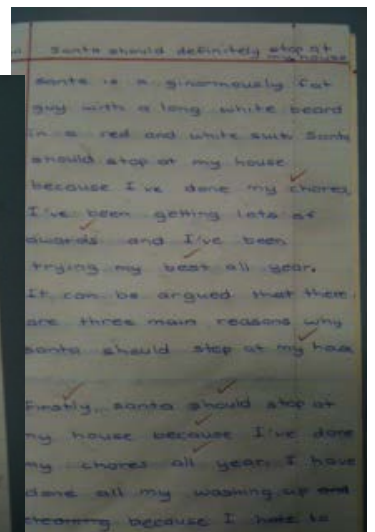 Santa should definitely stop at
my house
Santa is a ginormously fat
guy with a long white beard
in a red and white suit. Santa
should stop at my house
because I've done my chores,
I've been getting lots of
awards and I've been
trying my best all year.
It can be argued that there
are three main reasons why
santa should stop at my house
Firstly, santa should stop at
my house because I've done
my chores all year. I have
done all my washing up and
cleaning because I hate to